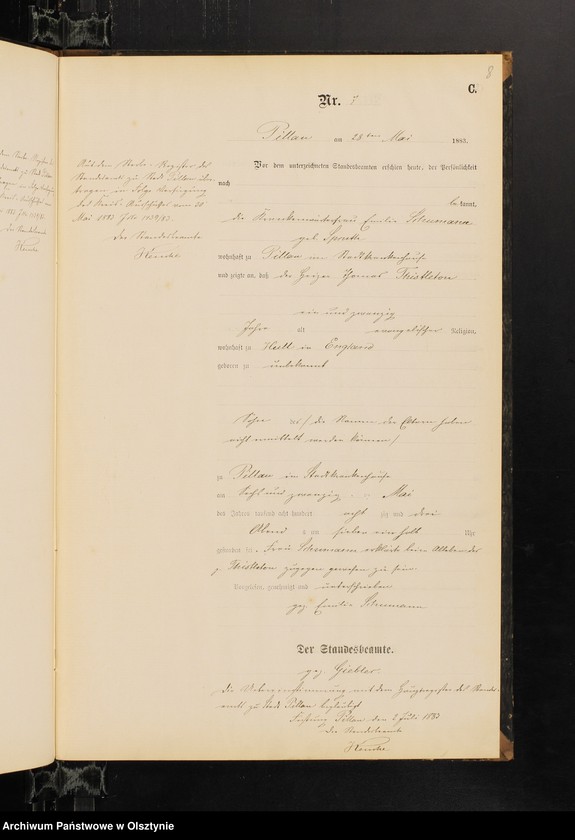 8
C.
Nr. 7
Pillau am 28ten Mai 1883.
Vor dem unterzeichneten Standesbeamten erschien heute, der Persönlichkeit
nach
bekannt,
die Krankenwärterfrau Emilie Schumann
geb.
wohnhaft zu Pillau im Stadtkrankenhause
und zeigte an, daß der Heizer Thomas Thistleton
ein und zwanzig
Jahre alt evangelischer Religion,
wohnhaft zu Hull in England
geboren zu unbekannt
Sohn des / die Namen der Eltern haben
nicht ermittelt werden können /
zu Pillau im Stadtkrankenhause
am sechs und zwanzig Mai
des Jahres tausend acht hundert achtzig und drei
Abends um sieben ein halb Uhr
Frau Schumann erklärte beim Ableben des
p. Thistleton zugegen gewesen zu sein.
Vorgelesen, genehmigt und unterschrieben
gez. Emilie Schumann
Der Standesbeamte.
gez. Giebler.
Die Uebereinstimmung mit dem Hauptregister des Standes-
amts zu Stadt Pillau beglaubigt
Festung Pillau den 2 Juli 1883
Der Standesbeamte
Aus dem Neben-Register des
Standesamts zu Stadt Pillau über-
tragen in Folge Verfügung
des Kreis-Ausschusses vom 20
Mai 1883
Der Standesbeamte
Archiwum Państwowe w Olsztynie